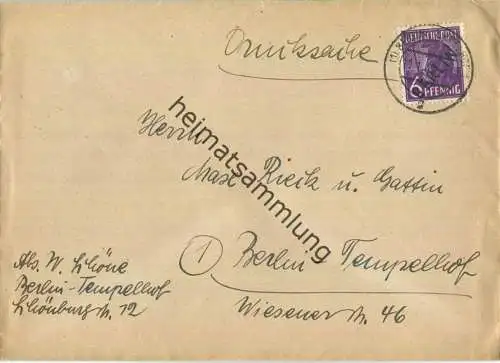 Drucksache
DEUTSCHE POST
6 PFENNIG
BERLIN
Herrn
Max Rieck u. Gattin
heimatsammlung
1 Berlin Tempelhof
Wiesener str. 46
Abs. W. Schöne
Berlin-Tempelhof
Schönburg str. 12